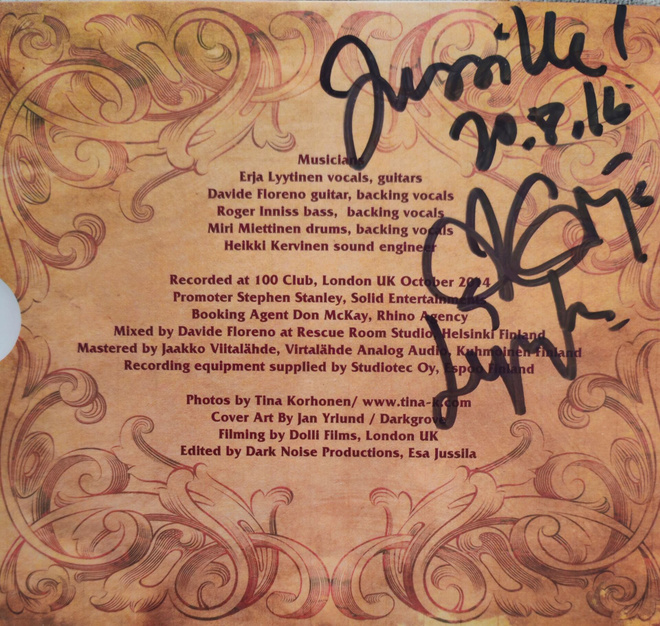 Jussille!
20.8.16
Musicians
Erja Lyytinen vocals, guitars
Davide Floreno guitar, backing vocals
Roger Inniss bass, backing vocals
Miri Miettinen drums, backing vocals
Heikki Kervinen sound engineer
Recorded at 100 Club, London UK October 2014
Promoter Stephen Stanley, Solid Entertainments
Booking Agent Don McKay, Rhino Agency
Mixed by Davide Floreno at Rescue Room Studio, Helsinki Finland
Mastered by Jaakko Viitalähde, Virtalähde Analog Audio, Kuhmoinen Finland
Recording equipment supplied by Studiotec Oy, Espoo Finland
Photos by Tina Korhonen/ www.tina-k.com
Cover Art By Jan Yrlund / Darkgrove
Filming by Dolli Films, London UK
Edited by Dark Noise Productions, Esa Jussila